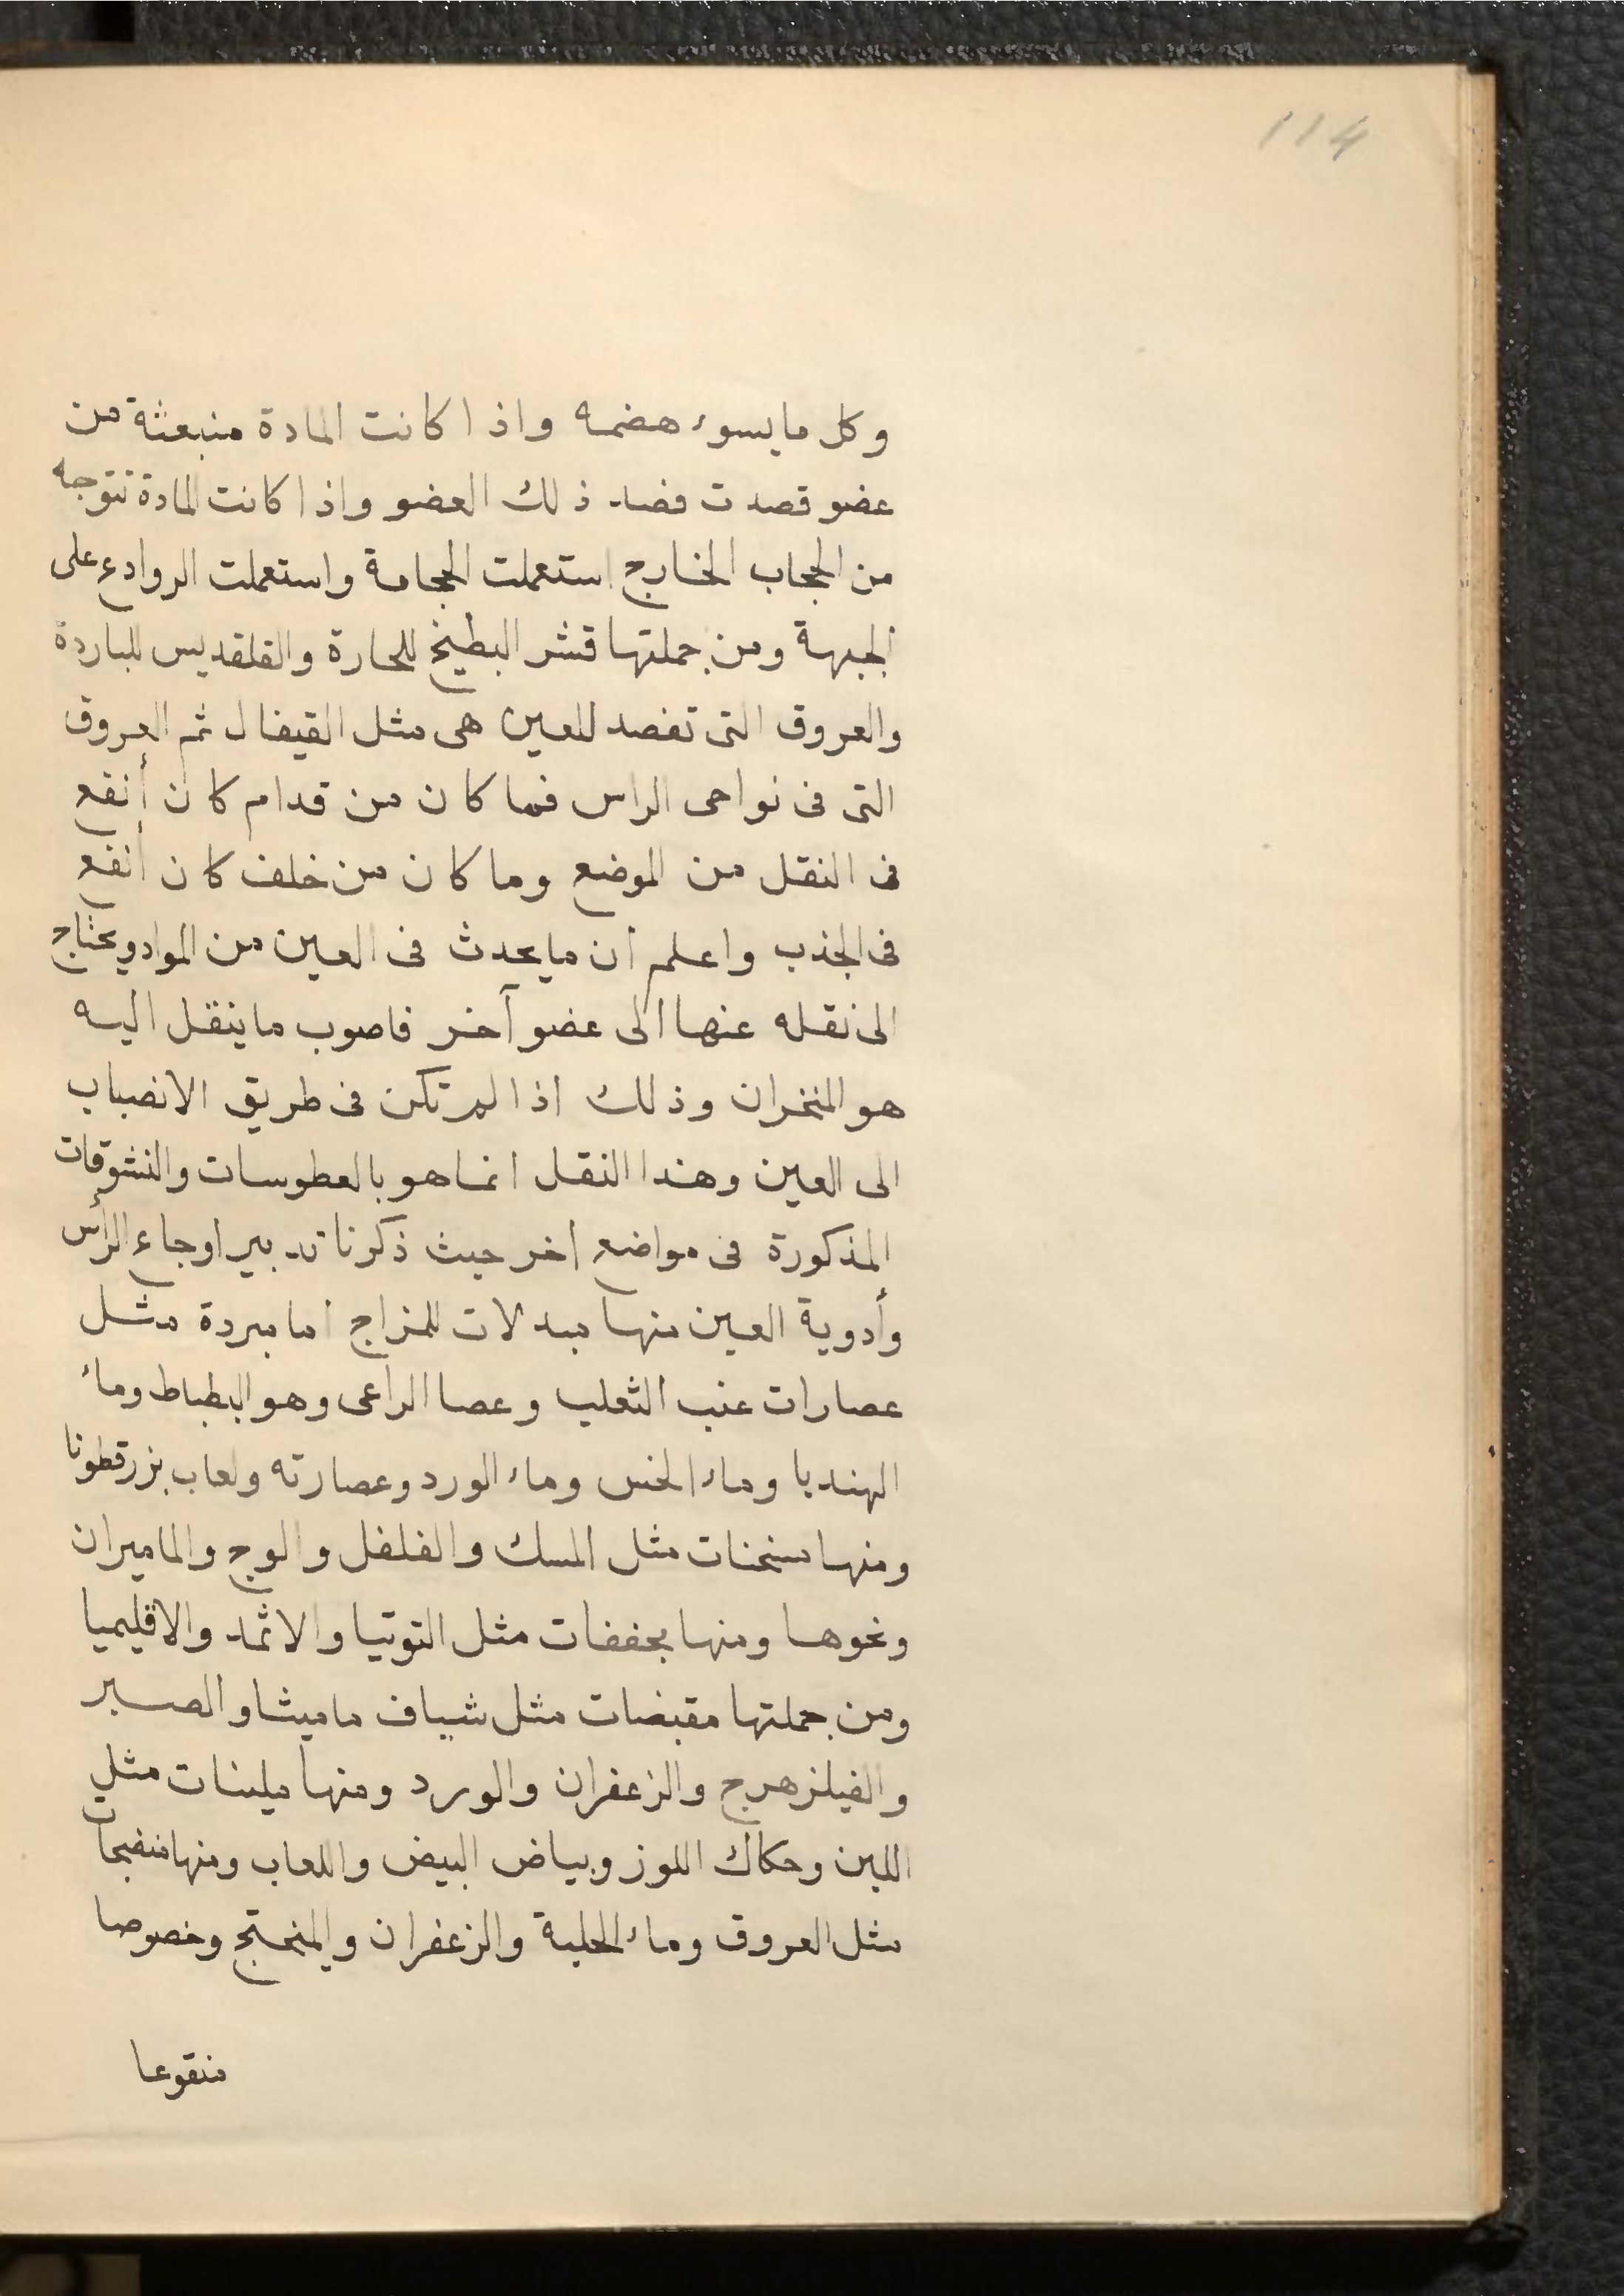 114
وكل ما يسوء هضمه واذا كانت المادة منبعثة من
عضو قصدت فصد ذلك العضو واذا كانت المادة تتوجه
من الحجاب الخارج استعملت الحجامة واستعملت الروادع على
الجبهة ومن جملتها قشر البطيخ للحارة والقلقديس للباردة
والعروق التى تفصد للعين هى مثل القيفال ثم العروق
التى فى نواحى الراس فما كان من قدام كان أنفع
فى النقل من الموضع وما كان من خلف كان أنفع
فى الجذب واعلم أن ما يحدث فى العين من المواد ويحتاج
الى نقله عنها الى عضو آخر فاصوب ما ينقل اليه
هو المنخران وذلك اذا لم تكن فى طريق الانصباب
الى العين وهذا النقل انما هو بالعطوسات والنشوقات
المذكورة فى مواضع اخر حيث ذكرنا تدبير اوجاع الرأس
وأدوية العين منها مبدلات للمزاج اما مبردة مثل
عصارات عنب الثعلب وعصا الراعى وهو البطباط وماء
الهندبا وماء الخس وماء الورد وعصارته ولعاب بزرقطونا
ومنها مسخنات مثل المسك والفلفل والوج والماميران
ونحوها ومنها مجففات مثل التوتيا والاثمد والاقليميا
ومن جملتها مقبضات مثل شياف ماميثا والصبر
والفيلزهرج والزعفران والورد ومنها ملينات مثل
اللبن وحكاك اللوز وبياض البيض واللعاب ومنها منضجات
مثل العروق وماء الحلبة والزعفران والمنجتج وخصوصا
منقوعا